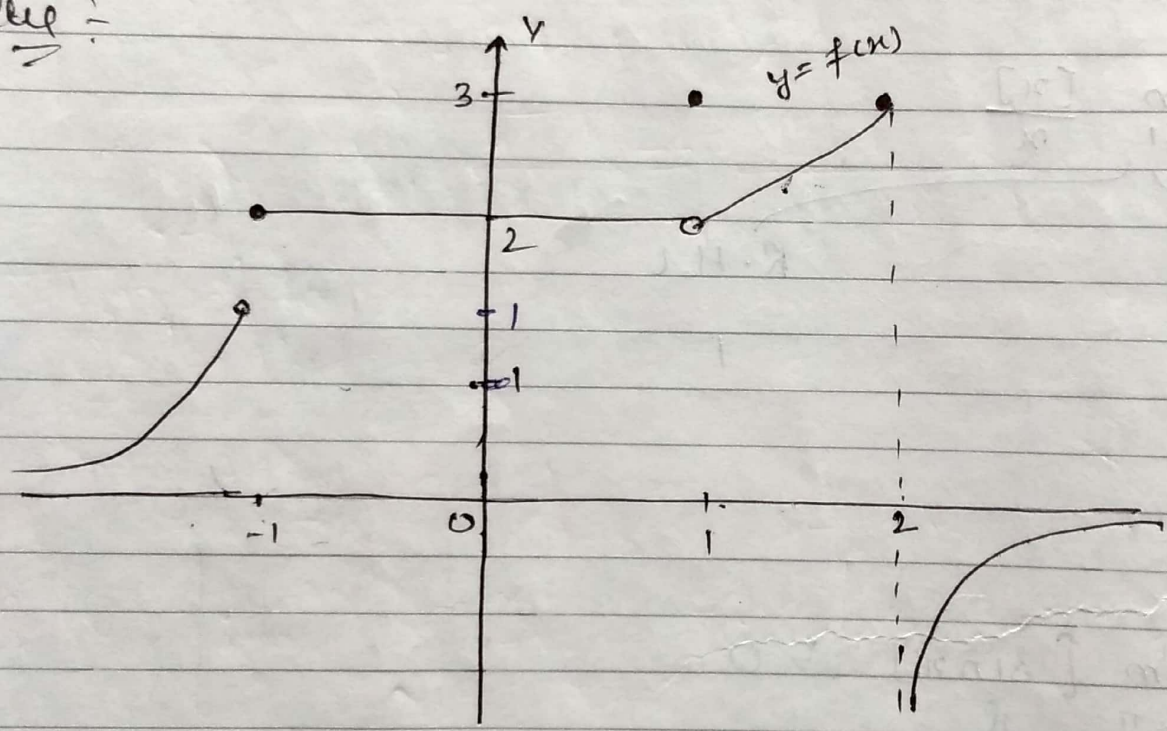 Y
y = f(x)
3
2
1
1
-1
0
1
2